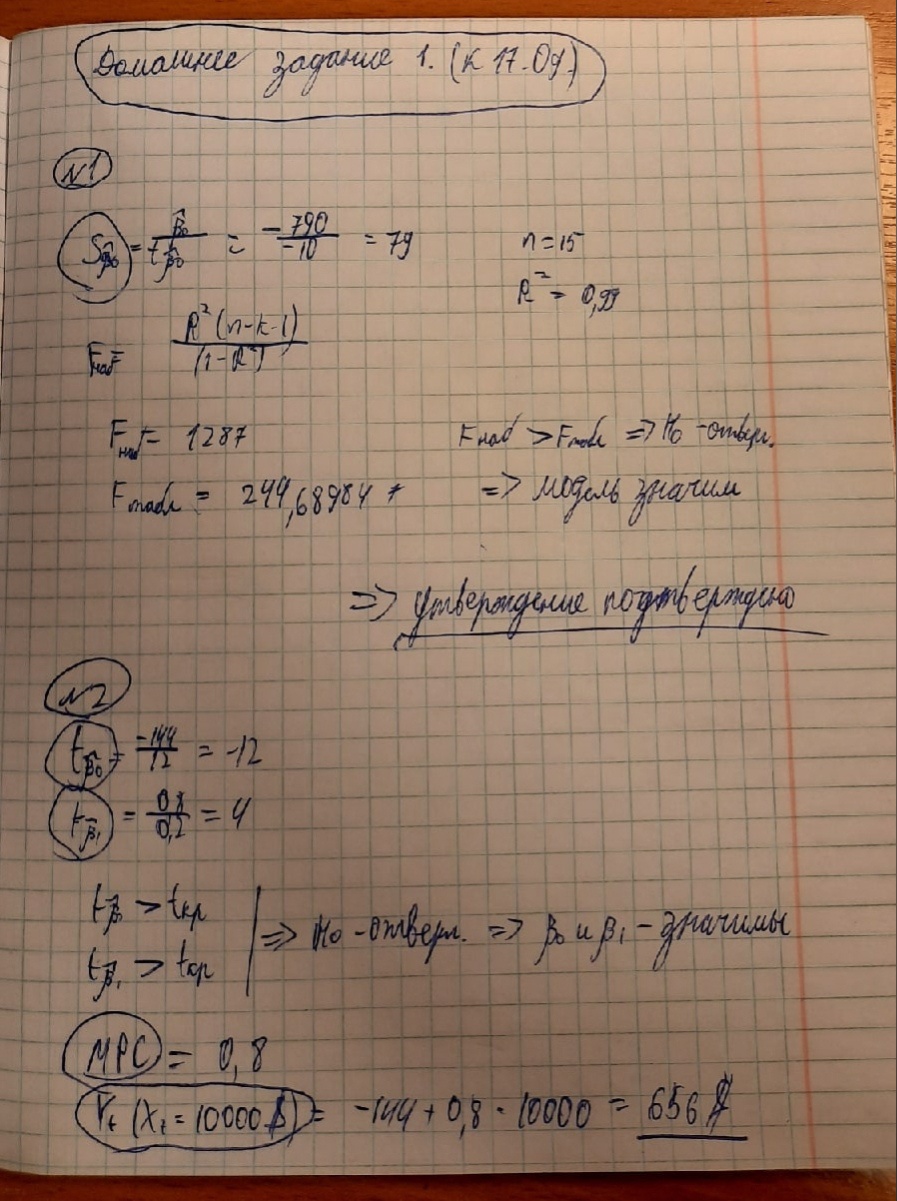 Домашнее задание 1. (к 17.09)
№1
S_β̂₀ = β̂₀ / t_β̂₀ = -790 / -10 = 79
n = 15
R² = 0,99
Fнаб = R²(n-k-1) / (1-R²)
Fнаб = 1287
Fнаб > Fтабл => H₀ - отверг.
Fтабл = 244,68984
=> модель значим
=> утверждение подтверждено
№2
t_β̂₀ = -144 / 12 = -12
t_β̂₁ = 0,8 / 0,2 = 4
t_β̂₀ > tкр
t_β̂₁ > tкр
=> H₀ - отверг. => β₀ и β₁ - значимы
MPC = 0,8
Yₜ (Xₜ = 10000 $) = -144 + 0,8 · 10000 = 656 $